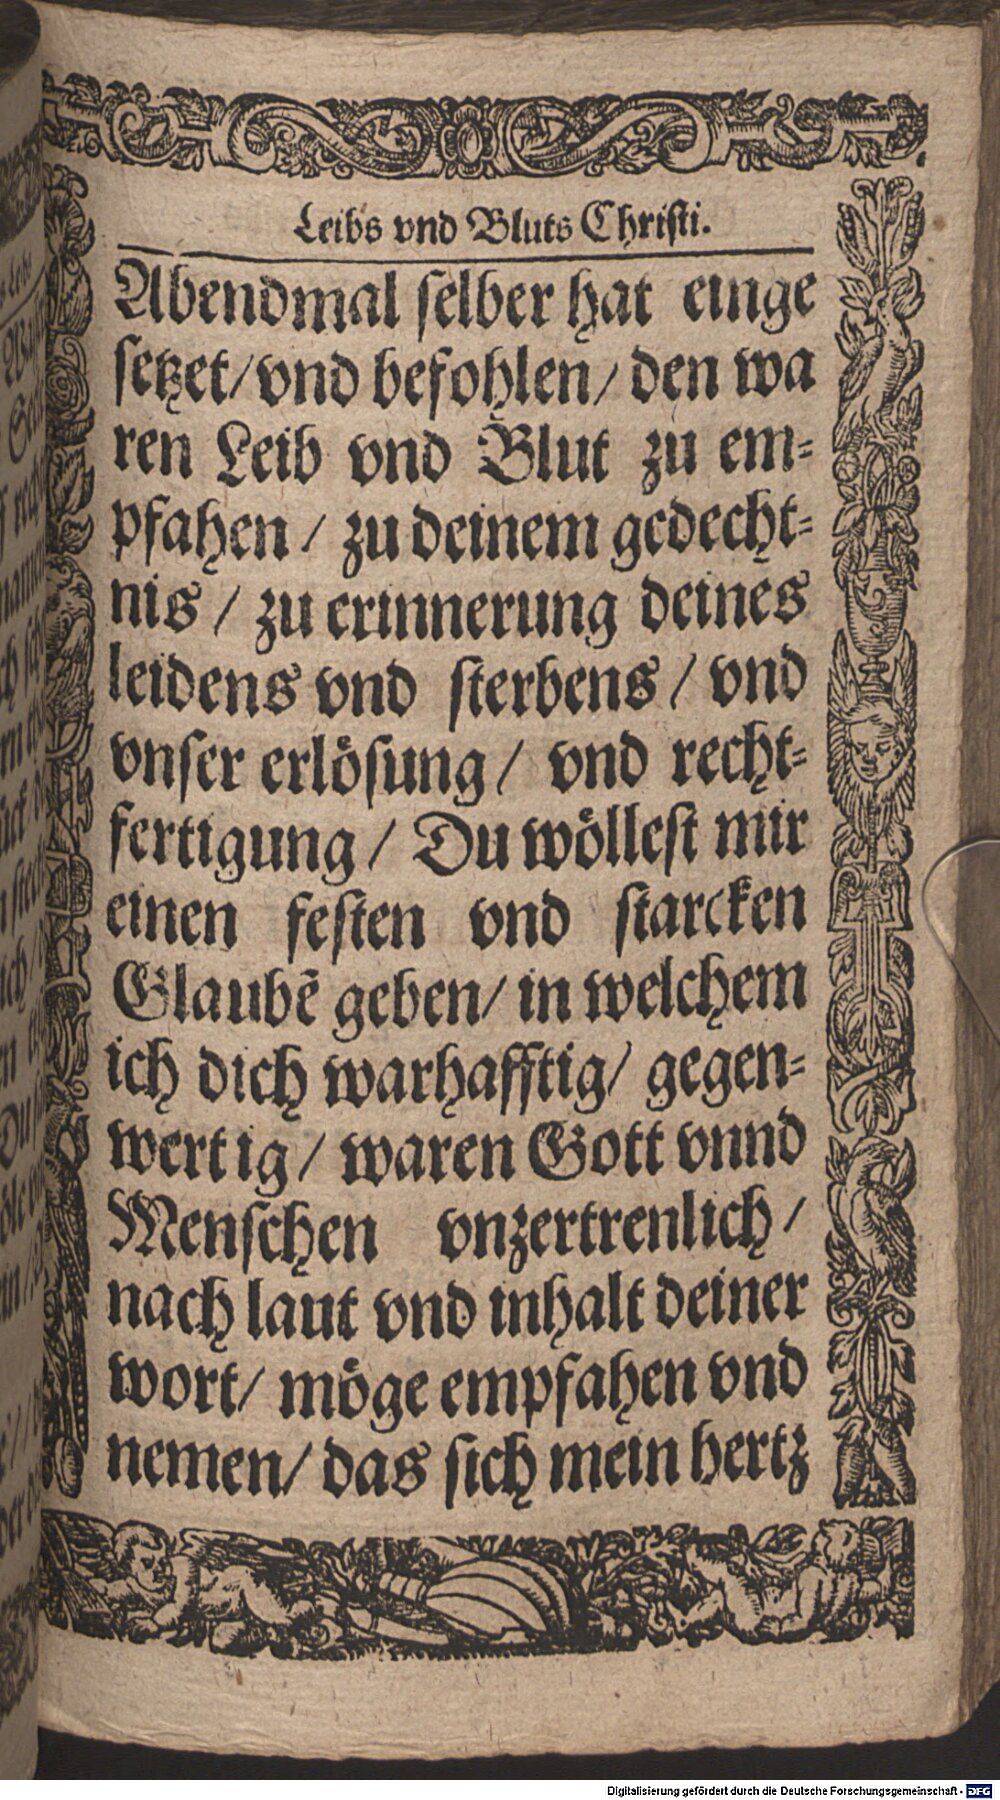 Leibs vnd Bluts Christi.
Abendmal selber hat einge
setzet/vnd befohlen/ den wa
ren Leib vnd Blut zu em=
pfahen / zu deinem gedecht=
nis / zu erinnerung deines
leidens vnd sterbens / vnd
vnser erlösung / vnd recht=
fertigung / Du wöllest mir
einen festen vnd starcken
Glaubē geben/ in welchem
ich dich warhafftig/ gegen=
wert ig / waren Gott vnnd
Menschen vnzertrenlich /
nach laut vnd inhalt deiner
wort/ möge empfahen vnd
nemen/ das sich mein hertz
Digitalisierung gefördert durch die Deutsche Forschungsgemeinschaft - DFG